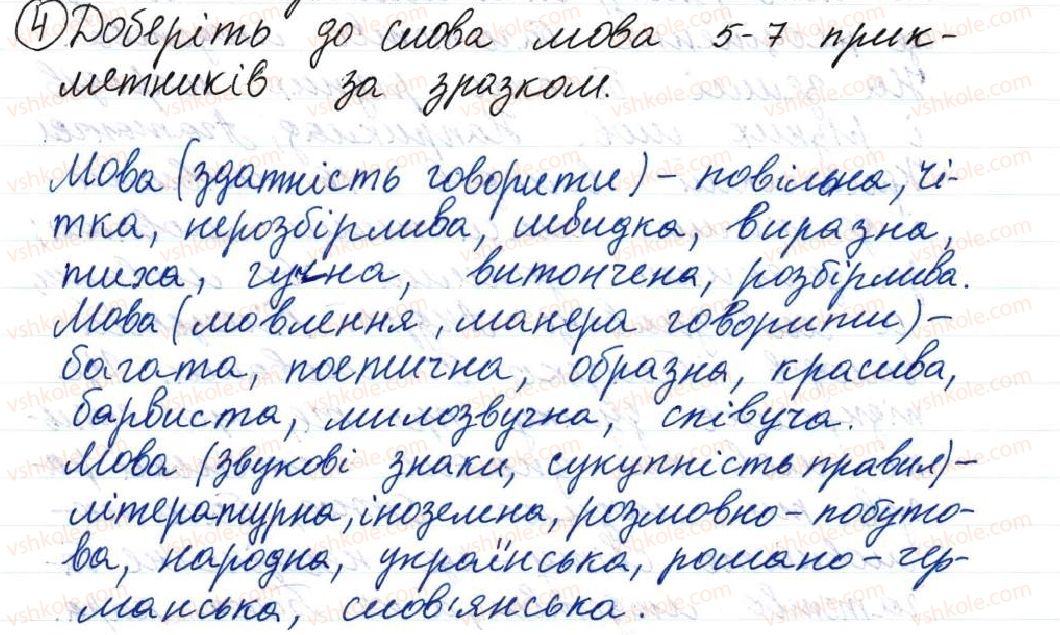 ④ Доберіть до слова мова 5-7 прик-
метників за зразком.
Мова (здатність говорити) – повільна, чі-
тка, нерозбірлива, швидка, виразна,
тиха, гучна, витончена, розбірлива.
Мова (мовлення, манера говорити) –
багата, поетична, образна, красива,
барвиста, милозвучна, співуча.
Мова (звукові знаки, сукупність правил) –
літературна, іноземна, розмовно-побуто-
ва, народна, українська, романо-гер-
манська, слов'янська.
vshkole.com